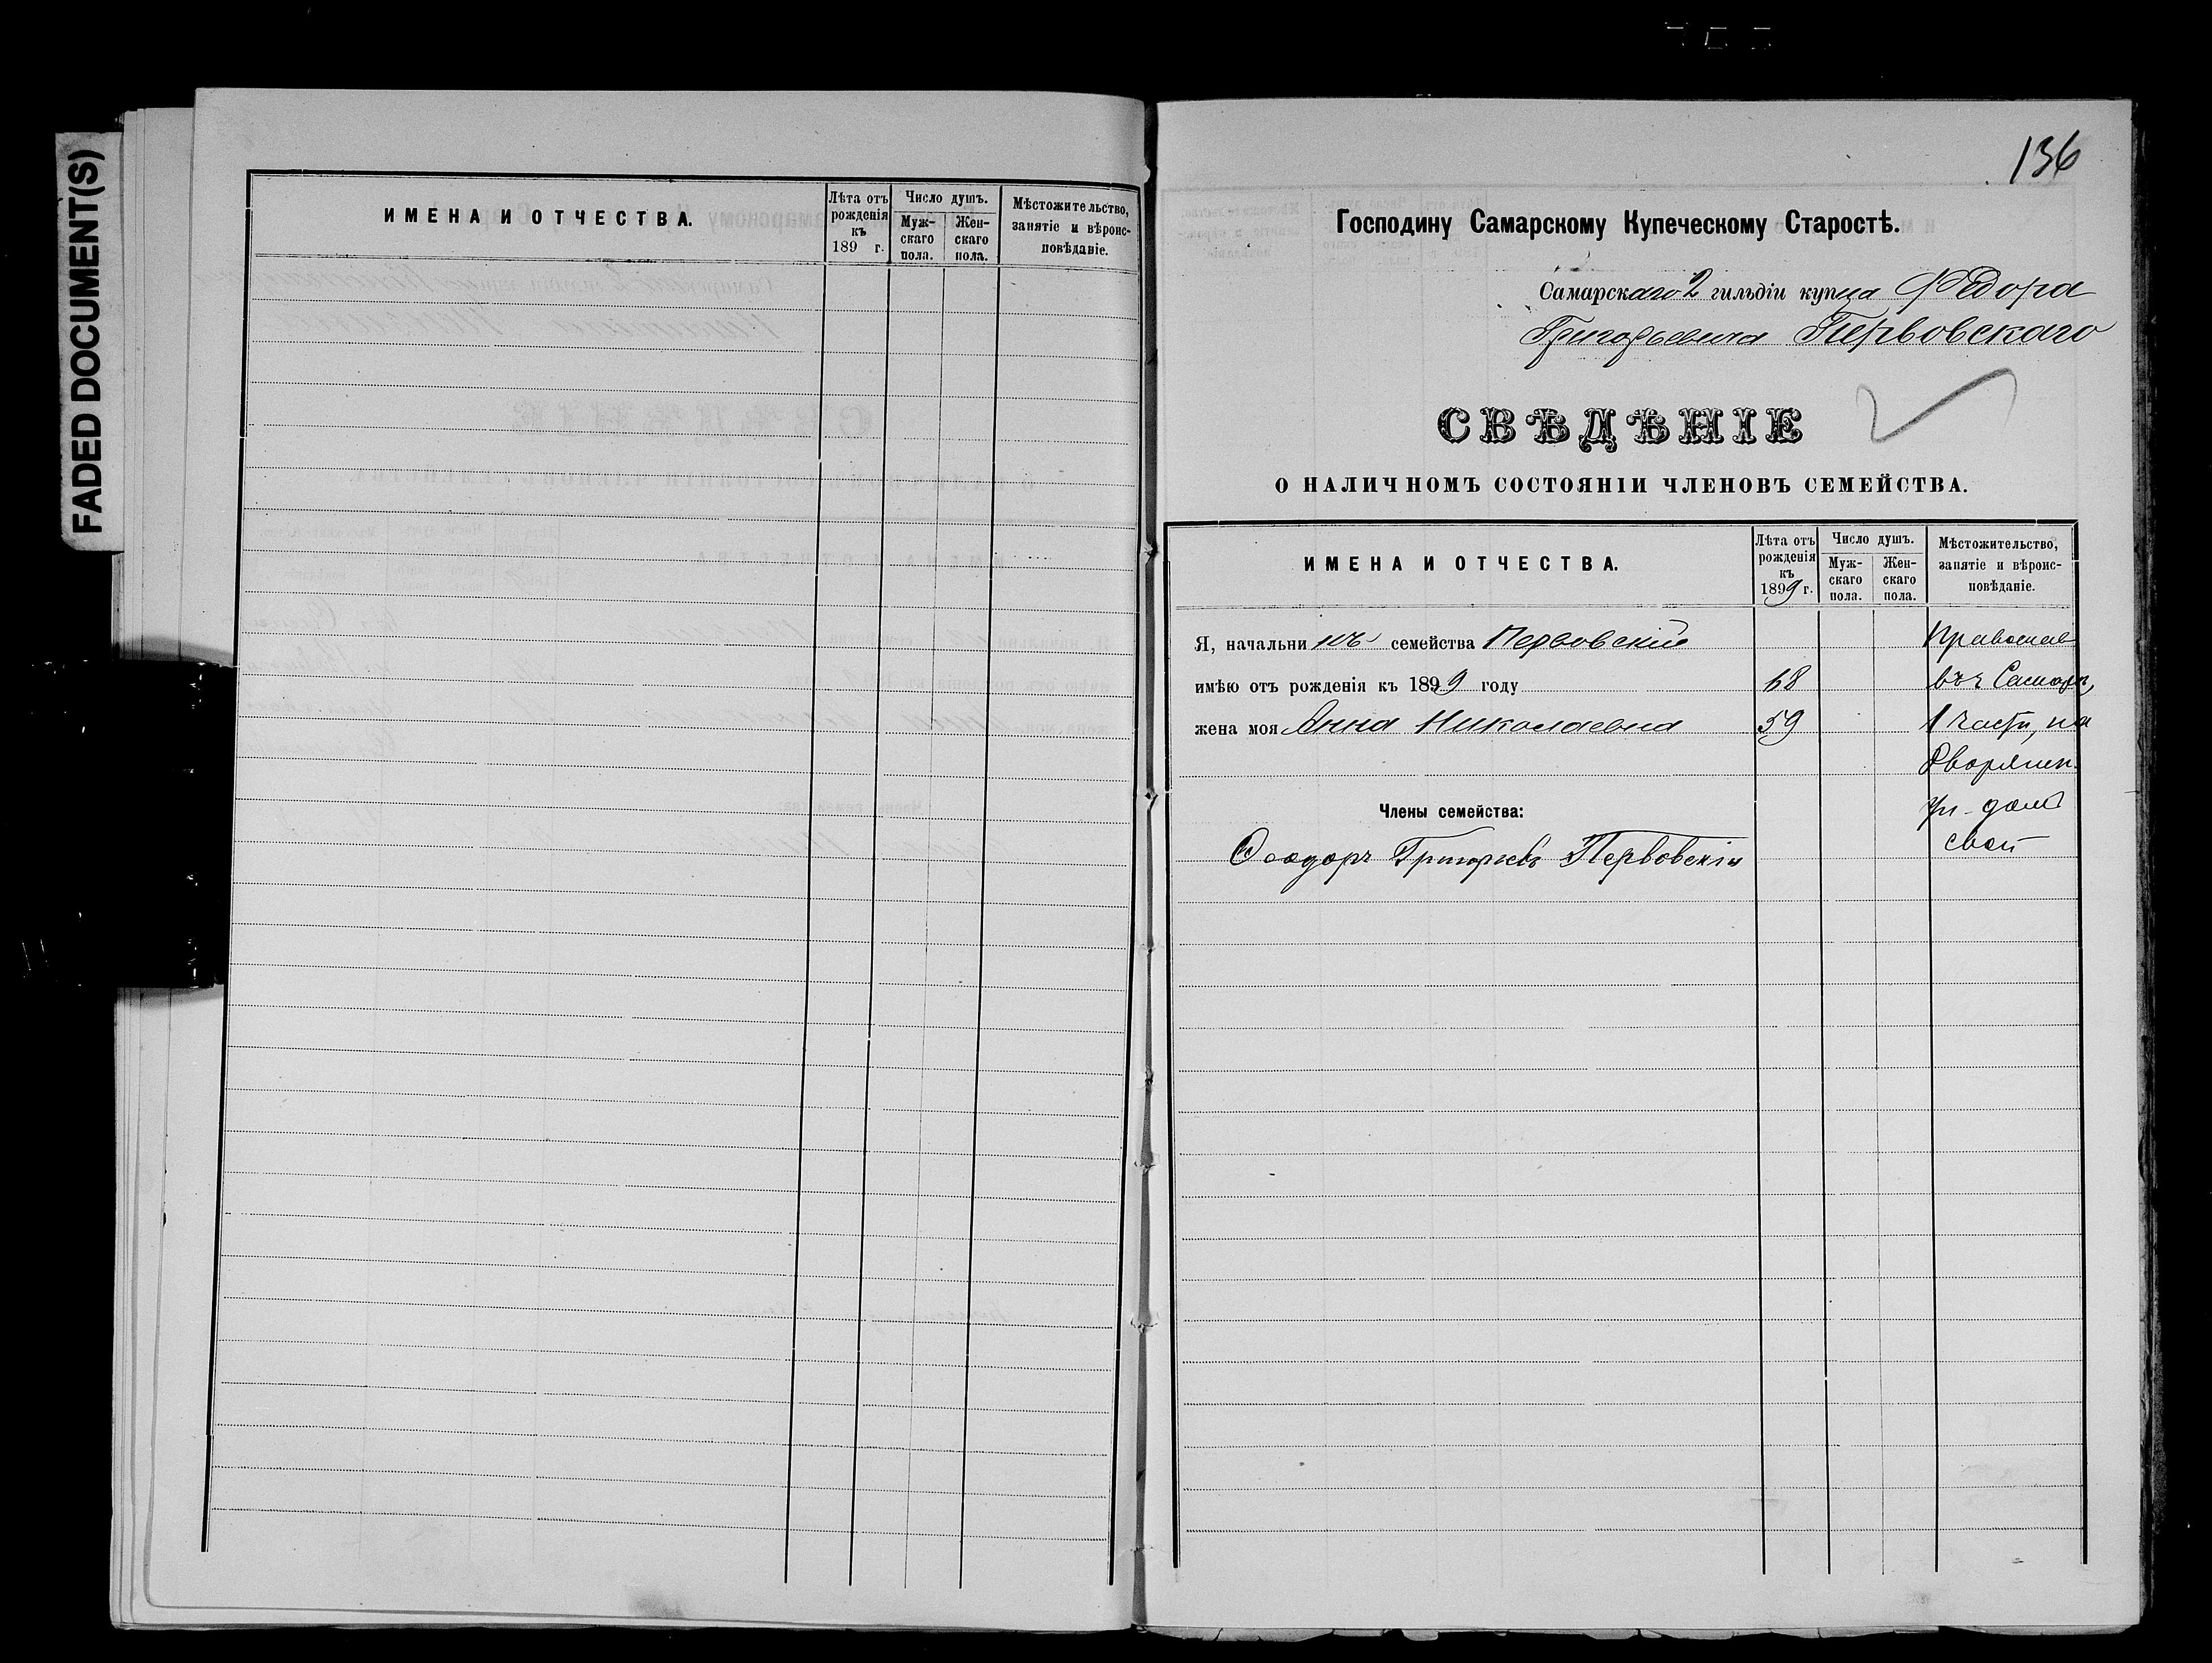 FADED DOCUMENT(S)
ИМЕНА И ОТЧЕСТВА.
Лѣта отъ рожденія къ 189 г.
Число душъ.
Мужскаго пола.
Женскаго пола.
Мѣстожительство, занятіе и вѣроисповѣданіе.
136
Господину Самарскому Купеческому Старостѣ.
Самарскаго 2 гильдіи купца Федора
Григорьевича Первовскаго
СВѢДѢНІЕ
О НАЛИЧНОМЪ СОСТОЯНІИ ЧЛЕНОВЪ СЕМЕЙСТВА.
ИМЕНА И ОТЧЕСТВА.
Лѣта отъ рожденія къ 1899 г.
Число душъ.
Мужскаго пола.
Женскаго пола.
Мѣстожительство, занятіе и вѣроисповѣданіе.
Я, начальникъ семейства Первовскій Православ
имѣю отъ рожденія къ 1899 году 68 въ г Самарѣ,
жена моя Анна Николаевна 59 1 части, на
Дворянск.
Члены семейства: ул. домъ
свой
Ѳеодоръ Григорьевъ Первовскій